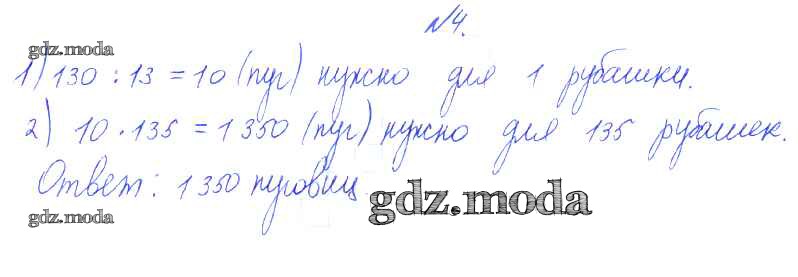 №4.
gdz.moda
1) 130 : 13 = 10 (пуг) нужно для 1 рубашки.
2) 10 · 135 = 1350 (пуг) нужно для 135 рубашек.
Ответ: 1350 пуговиц
gdz.moda
gdz.moda